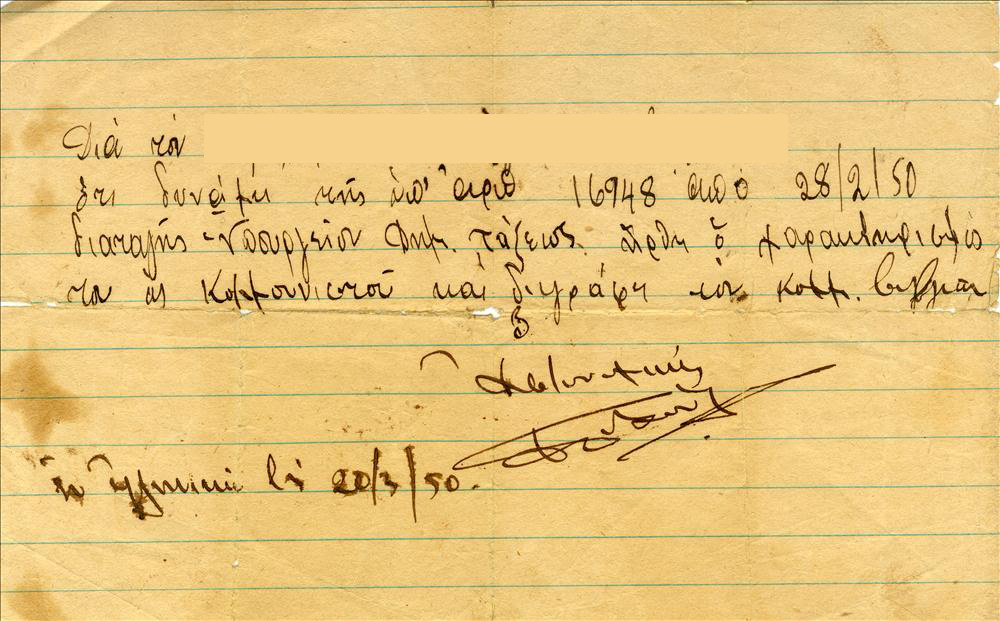 Διά τόν
ὅτι δυνάμει τῆς ὑπ' ἀριθ 16948 ἀπό 28/2/50
διαταγῆς Ὑπουργείου Δημ. τάξεως ἤρθη ὁ χαρακτηρισμός
του ὡς Κομμουνιστοῦ καί διεγράφη τῶν κομμ. βιβλίων
Ὁ
Ἀστυνομικός
20/3/50.